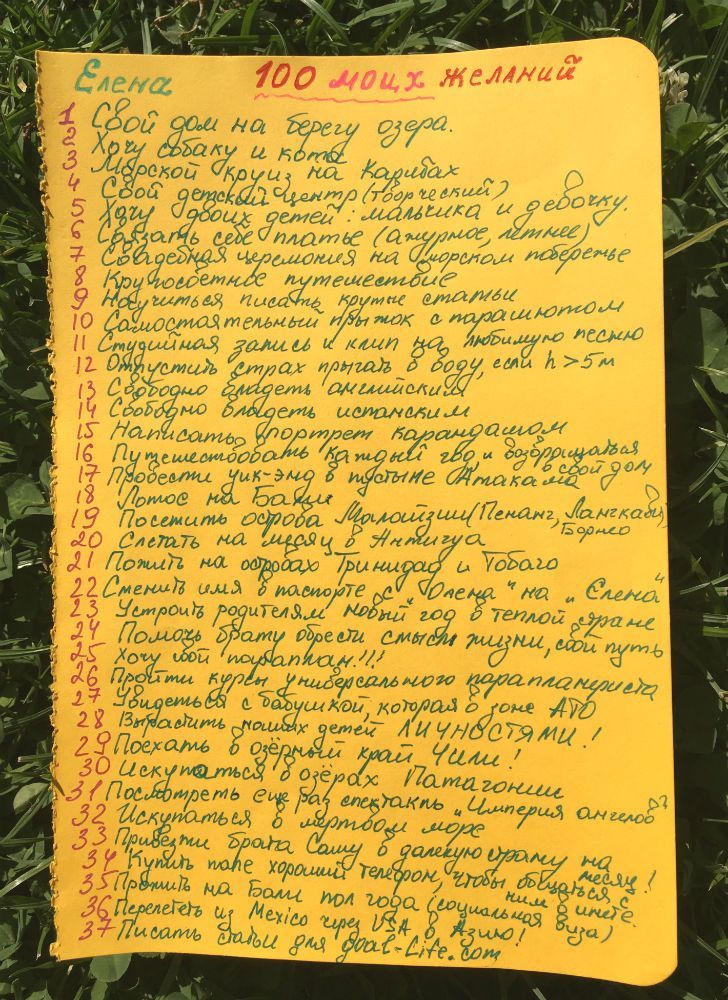 Елена 100 моих желаний
1 Свой дом на берегу озера.
2 Хочу собаку и кота
3 Морской круиз на Карибах
4 Свой детский центр (творческий)
5 Хочу двоих детей: мальчика и девочку.
6 Связать себе платье (ажурное, летнее)
7 Свадебная церемония на морском побережье
8 Кругосветное путешествие
9 Научиться писать крутые статьи
10 Самостоятельный прыжок с парашютом
11 Студийная запись и клип на любимую песню
12 Отпустить страх прыгать в воду, если h > 5 м
13 Свободно владеть английским
14 Свободно владеть испанским
15 Написать портрет карандашом
16 Путешествовать каждый год и возвращаться
в свой дом
17 Провести уик-энд в пустыне Атакама
18 Лотос на Бали
19 Посетить острова Малайзии (Пенанг, Лангкави,
Борнео
20 Слетать на месяц в Антигуа
21 Пожить на островах Тринидад и Тобаго
22 Сменить имя в паспорте с „Олена" на „Елена"
23 Устроить родителям новый год в теплой стране
24 Помочь брату обрести смысл жизни, свой путь
25 Хочу свой параплан!!!
26 Пройти курсы универсального парапланериста
27 Увидеться с бабушкой, которая в зоне АТО
28 Вырастить наших детей ЛИЧНОСТЯМИ!
29 Поехать в озёрный край Чили!
30 Искупаться в озёрах Патагонии
31 Посмотреть еще раз спектакль „Империя ангелов"
32 Искупаться в мертвом море
33 Привезти брата Сашу в далекую страну на
месяц!
34 Купить папе хороший телефон, чтобы общаться с
ним в инете.
35 Прожить на Бали пол года (социальная виза)
36 Перелететь из Mexico через USA в Азию!
37 Писать статьи для goal-Life.com